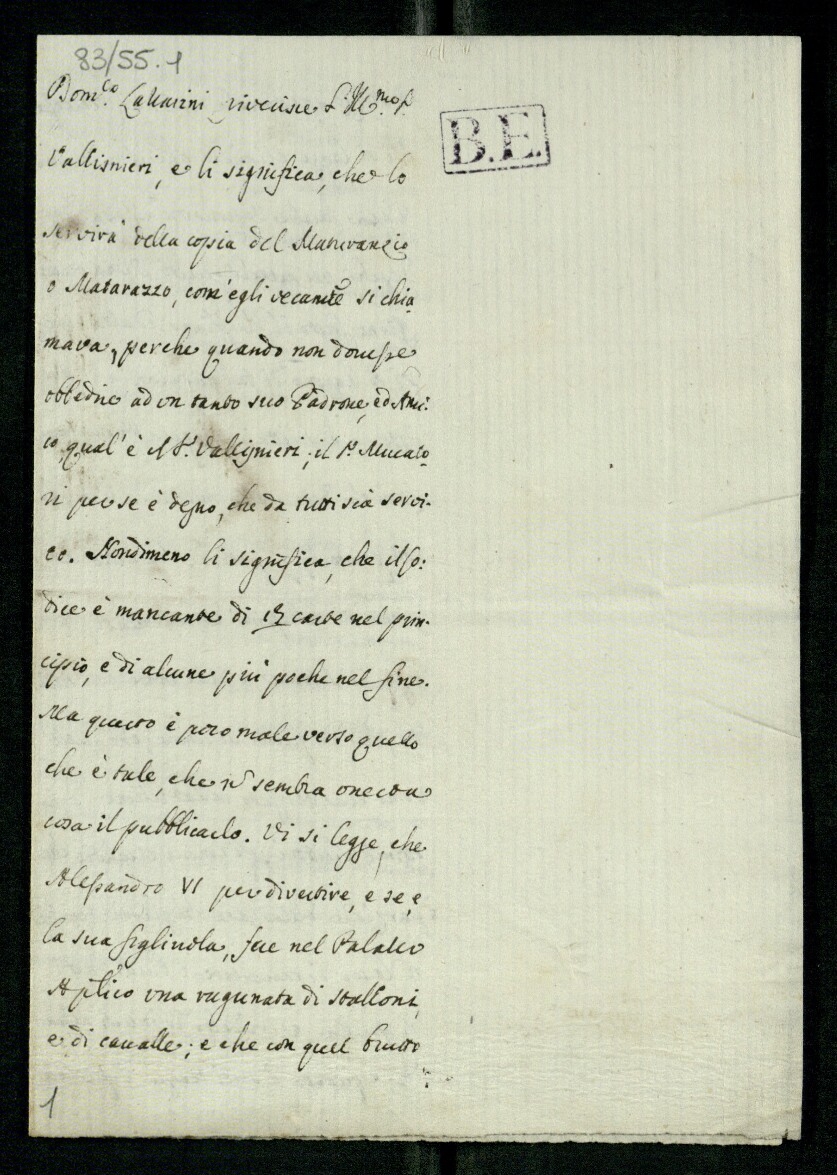 83/55.1
B.E.
Dom.co Lazzarini riverisce l'Ill.mo S.r
Vallisnieri, e li significa, che lo
servirà della copia del Maturanzio
o Matarazzo, com'egli veramte si chia
mava, perche quando non dovesse
obbedire ad un tanto suo Padrone, ed Ami:
co, qual'è il S.r Vallisnieri; il S.r Murato
ri per se è degno, che da tutti sia servi-
to. Nondimeno li significa, che il Co:
dice è mancante di carte nel prin-
cipio, e di alcune più poche nel fine.
Ma questo è poco male verso quello
che è tale, che nō sembra onesta
cosa il pubblicarlo. Vi si legge, che
Alessandro VI per divertire, e se, e
la sua figliuola, fece nel Palazzo
Aplico una ragunata di stalloni,
e di cavalle; e che con quel brutto
1